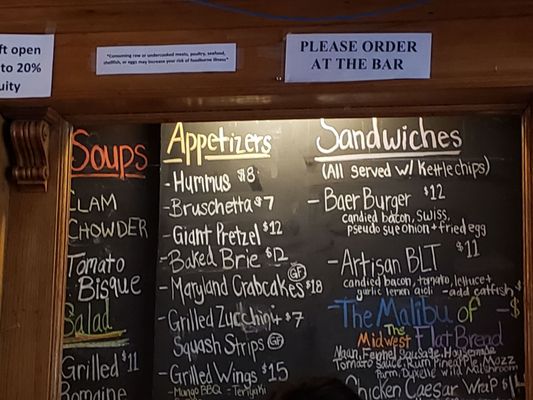 ft open
to 20%
uity
*Consuming raw or undercooked meats, poultry, seafood,
shellfish, or eggs may increase your risk of foodborne illness*
PLEASE ORDER
AT THE BAR
Soups
CLAM
CHOWDER
Tomato
Bisque
Salad
Grilled $11
Romaine
Appetizers
-Hummus $8
-Bruschetta $7
-Giant Pretzel $12
-Baked Brie $12
GF
-Maryland Crabcakes $18
-Grilled Zucchini + $7
Squash Strips GF
-Grilled Wings $15
-Mango BBQ -Teriyaki
Sandwiches
(All served w/ Kettle chips)
-BaerBurger $12
candied bacon, swiss,
pseudo sue onion + fried egg
-Artisan BLT $11
candied bacon, tomato, lettuce +
garlic lemon aioli -add catfish $
-The Malibu of -$
The
Midwest Flat Bread
Naan, Fennel Sausage, House made
Tomato Sauce, Rum Pineapple, Mozz
Parm Dykable Wild Mushroom
Chicken Caesar Wrap $14